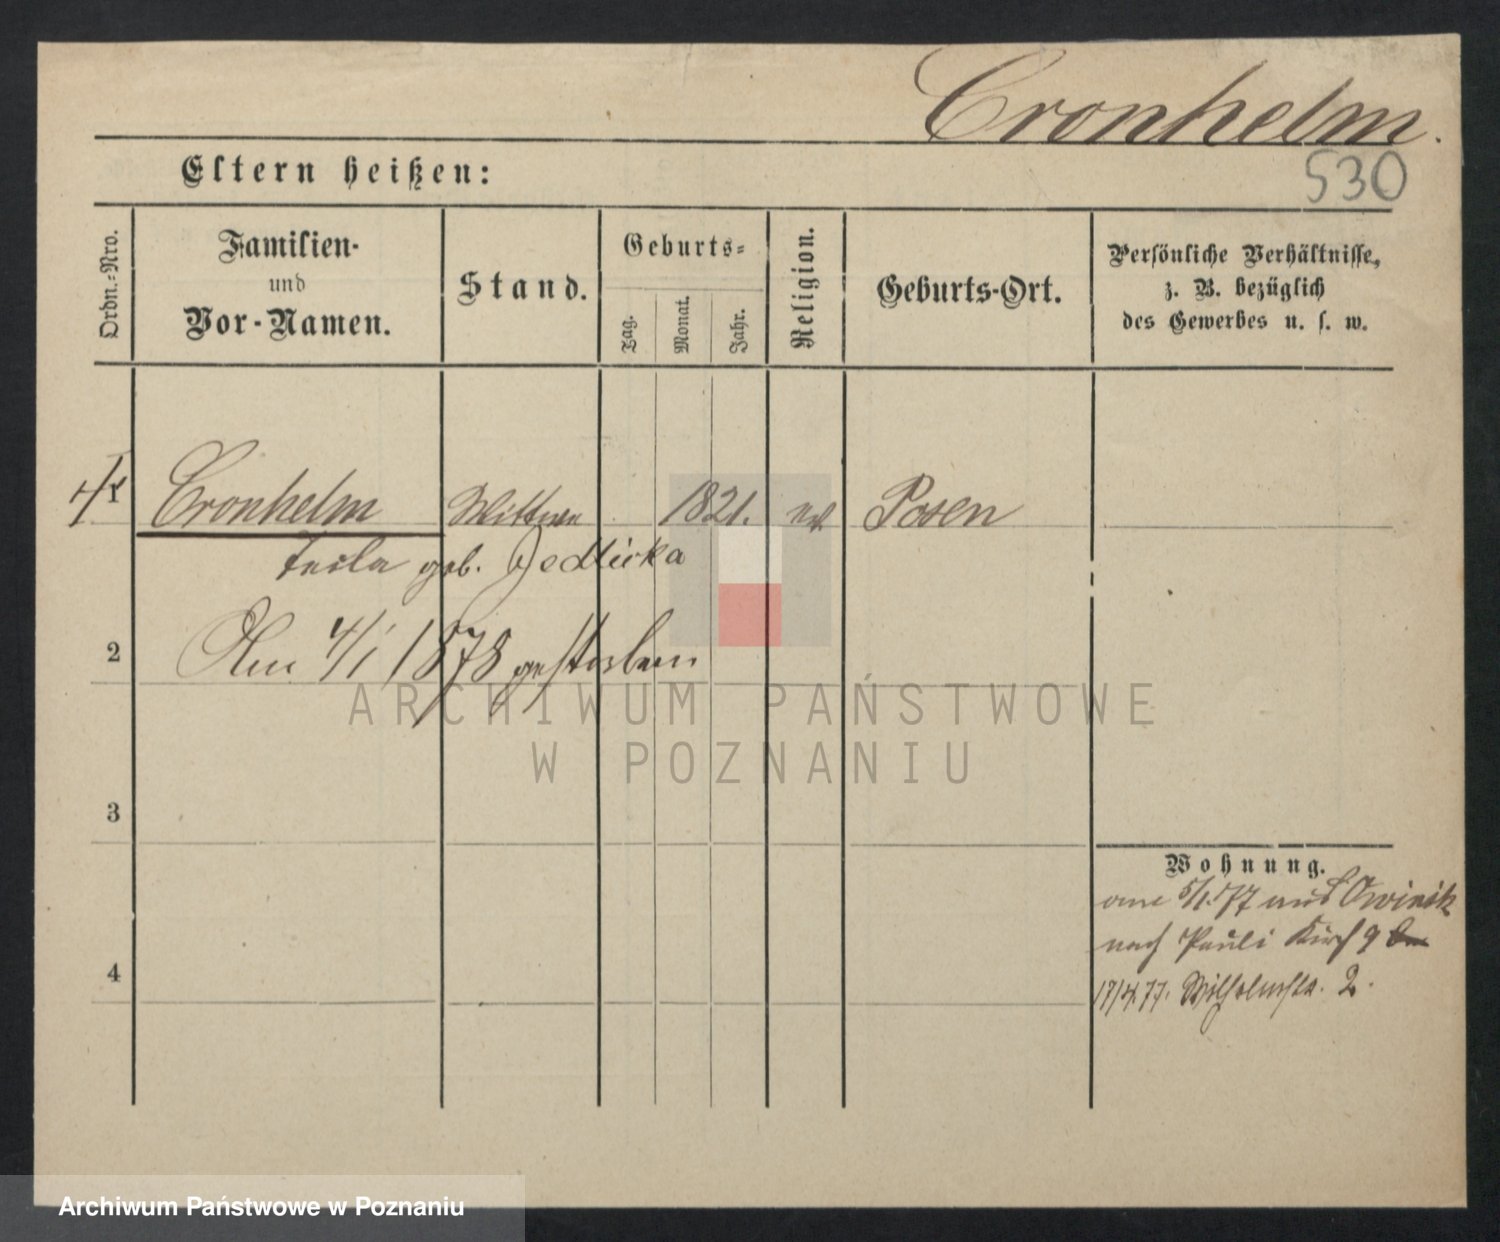 Cronhelm.
530
Eltern heißen:
Ordn.-Nro.
Familien-
und
Vor-Namen.
Stand.
Geburts-
Tag.
Monat.
Jahr.
Religion.
Geburts-Ort.
Persönliche Verhältnisse,
z. B. bezüglich
des Gewerbes u. s. w.
1
Cronhelm Wittwe 1821. ev Posen
geb. Jedlicka
2
Am 4/1 1878 gestorben
ARCHIWUM PAŃSTWOWE
W POZNANIU
3
Wohnung.
5/1.77 aus Owinsk
nach Pauli Kirch 9
4
17/4.77. Wilhelmstr. 2.
Archiwum Państwowe w Poznaniu